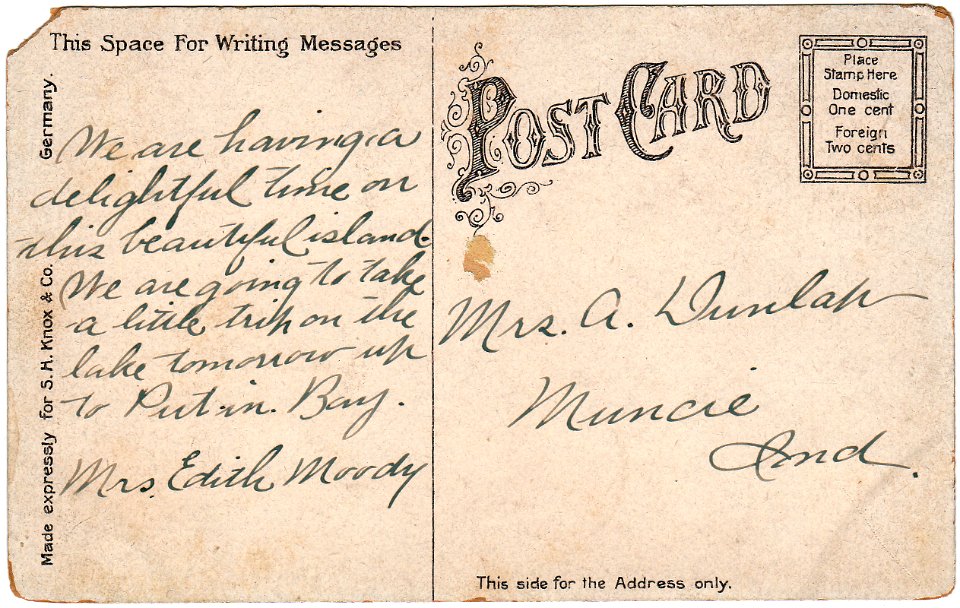 This Space For Writing Messages
We are having a
delightful time on
this beautiful island.
We are going to take
a little trip on the
lake tomorrow up
to Put-in. Bay.
Mrs. Edith Moody
Made expressly for S. H. Knox & Co. Germany.
POST CARD
Place
Stamp Here
Domestic
One cent
Foreign
Two cents
Mrs. A. Dunlap
Muncie
Ind.
This side for the Address only.